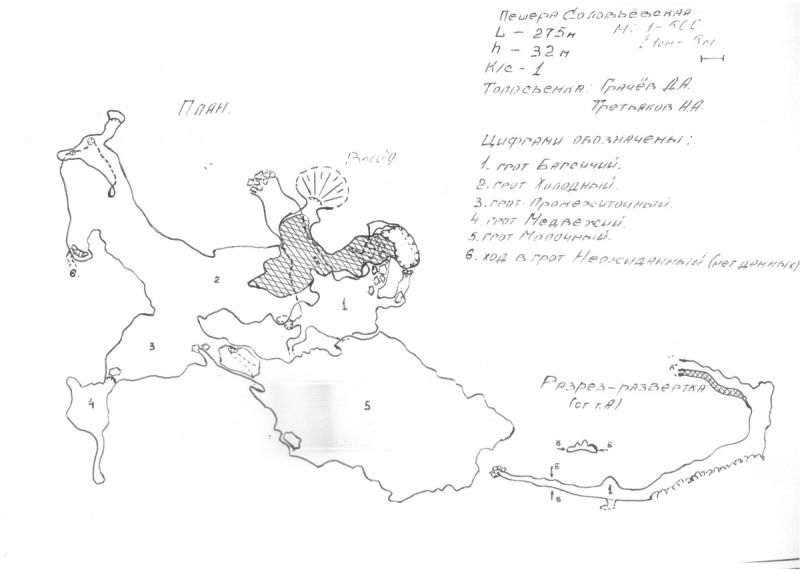 Пещера Соловьёвская
L - 275м
h - 32м
К/с - 1
Топосъемка: Грачёв Д.А.
Третьяков Н.А.
План.
Вход
Цифрами обозначены:
1. грот Барсучий.
2. грот Холодный.
3. грот Промежуточный.
4 грот Медвежий.
5. грот Молочный.
6. ход в грот Неожиданный (нет данных)
6
2
1
3
4
5
Разрез-развертка
(от т.А)
А
Б
Б
Б
Б
1